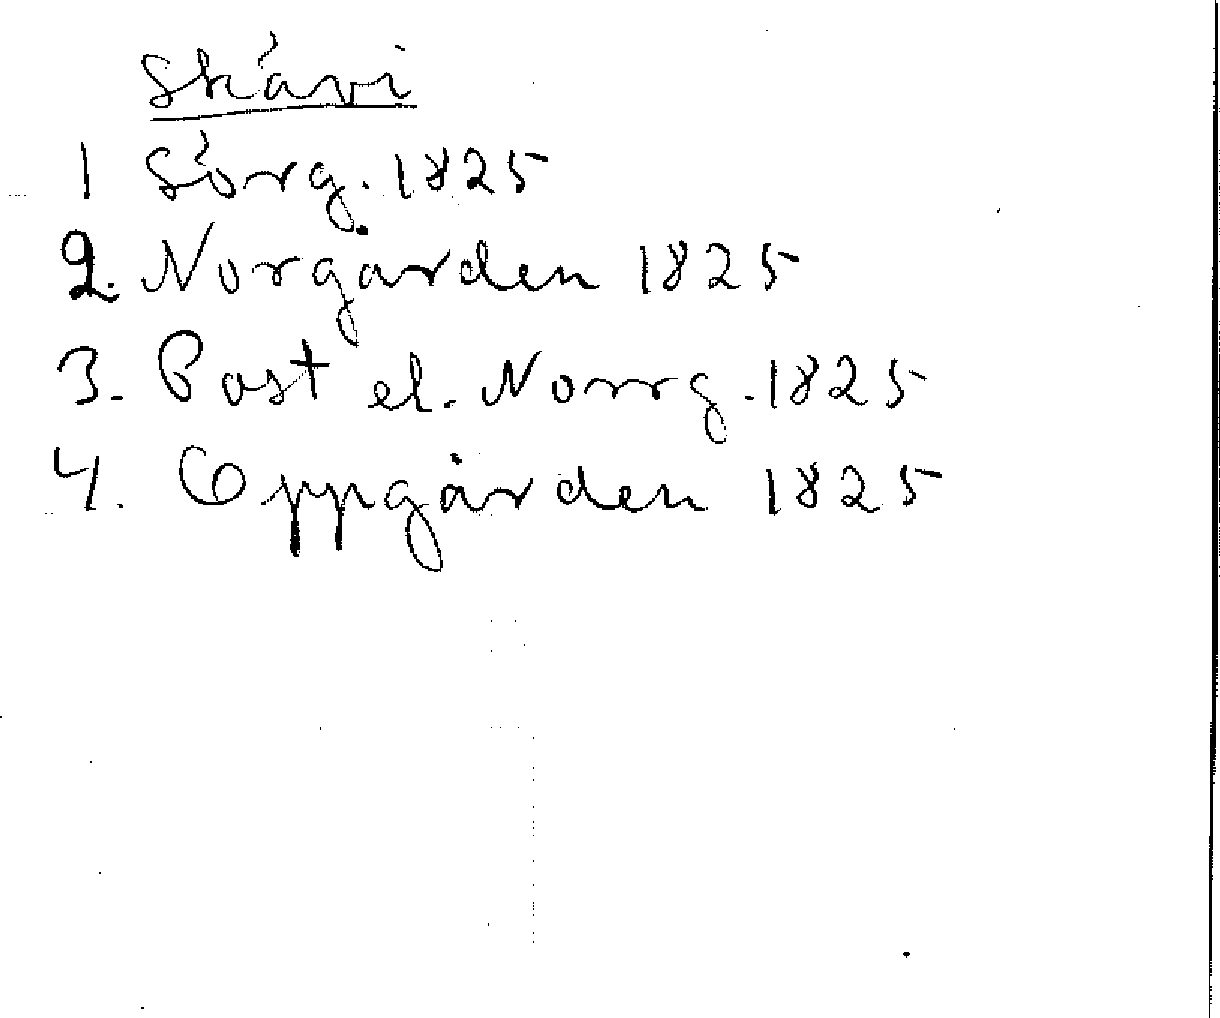 Skävi
1 Sörg. 1825
2. Norgården 1825
3. Post el. Norrg. 1825
4. Oppgården 1825